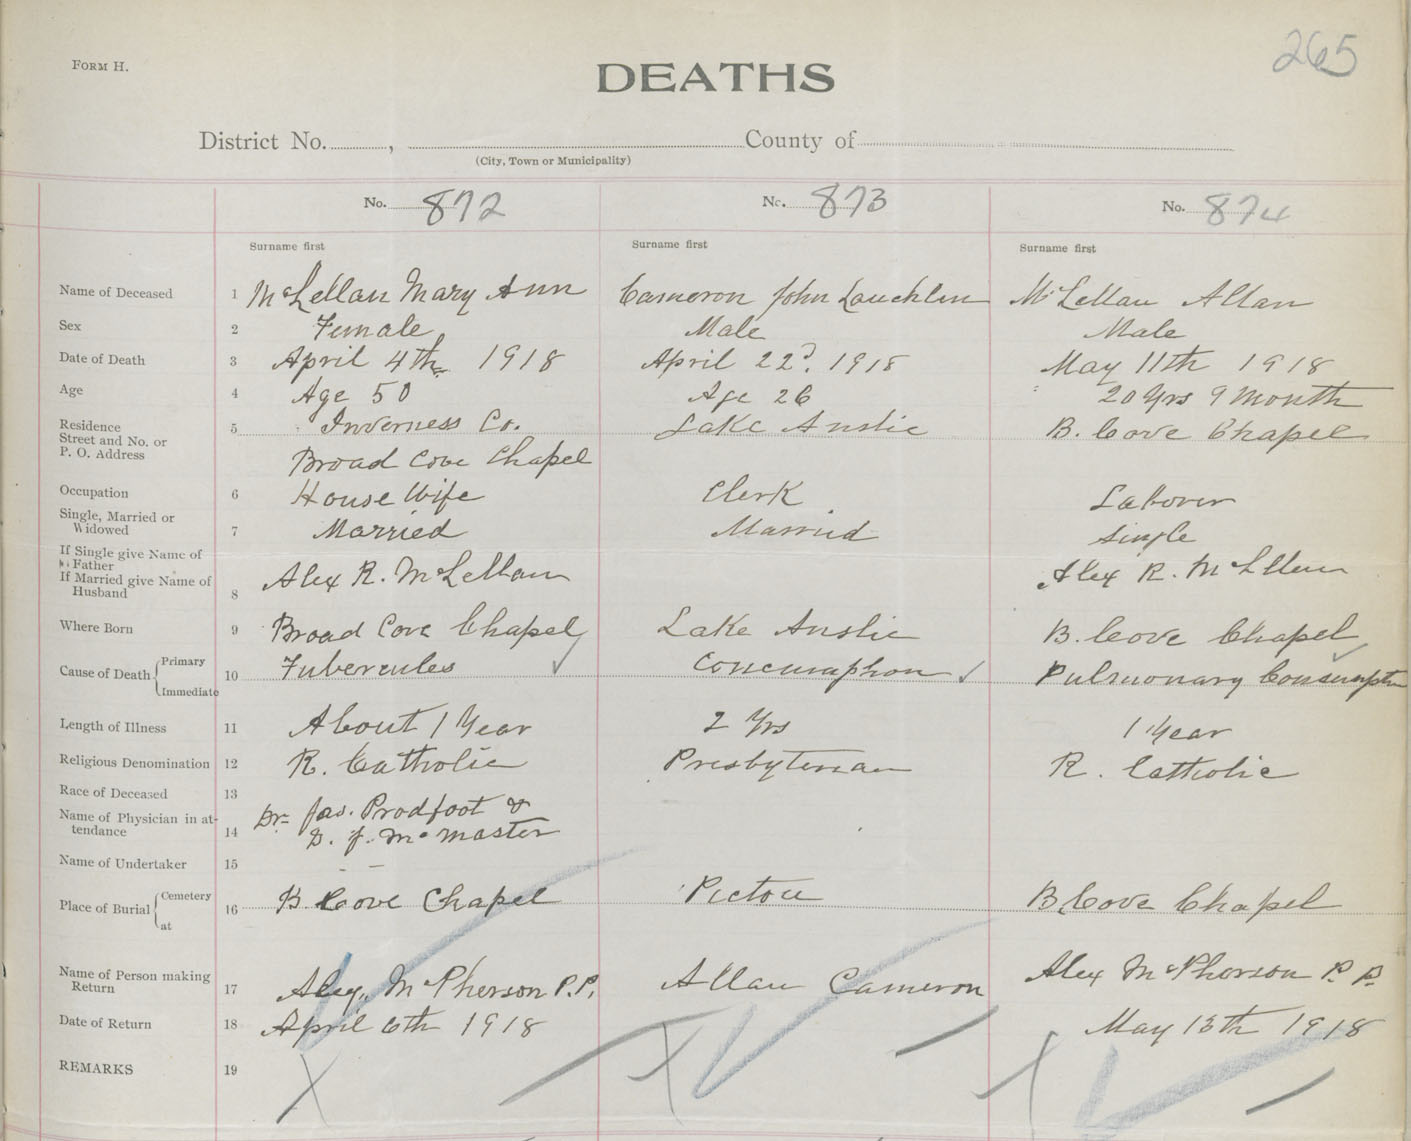 265
FORM H.
DEATHS
District No. , County of
(City, Town or Municipality)
No. 872 No. 873 No. 874
Surname first Surname first Surname first
Name of Deceased 1 McLellan Mary Ann Cameron John Lauchlin McLellan Allan
Sex 2 Female Male Male
Date of Death 3 April 4th 1918 April 22d. 1918 May 11th 1918
Age 4 Age 50 Age 26 20 Yrs 9 Month
Residence
Street and No. or
P. O. Address 5 Inverness Co. Lake Anslie B. Cove Chapel
Broad Cove Chapel
Occupation 6 House Wife Clerk Laborer
Single, Married or
Widowed 7 Married Married Single
If Single give Name of
Father
If Married give Name of
Husband 8 Alex R. McLellan Alex R. McLllan
Where Born 9 Broad Cove Chapel Lake Anslie B. Cove Chapel
Cause of Death { Primary
Immediate 10 Tubercules Concumphon Pulmonary Consumptn
Length of Illness 11 About 1 Year 2 Yrs 1 Year
Religious Denomination 12 R. Catholic Presbyterian R. Catholic
Race of Deceased 13
Name of Physician in at-
tendance 14 Dr Jas. Prodfoot &
D. J. McMaster
Name of Undertaker 15
Place of Burial { Cemetery
at 16 B Cove Chapel Pictou B. Cove Chapel
Name of Person making
Return 17 Alex. McPherson P.P. Allan Cameron Alex McPherson P. P.
Date of Return 18 April 6th 1918 May 13th 1918
REMARKS 19